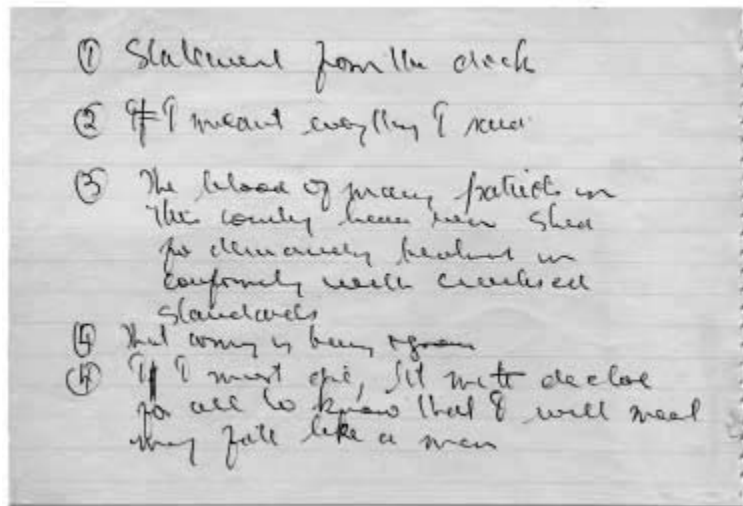 ① Statement from the dock
② If I meant everything I said
③ The blood of many patriots in
this country have been shed
for demanding treatment in
conformity with civilised
standards
④ That army is being
If I must die, let me declare
for all to know that I will meet
my fate like a man